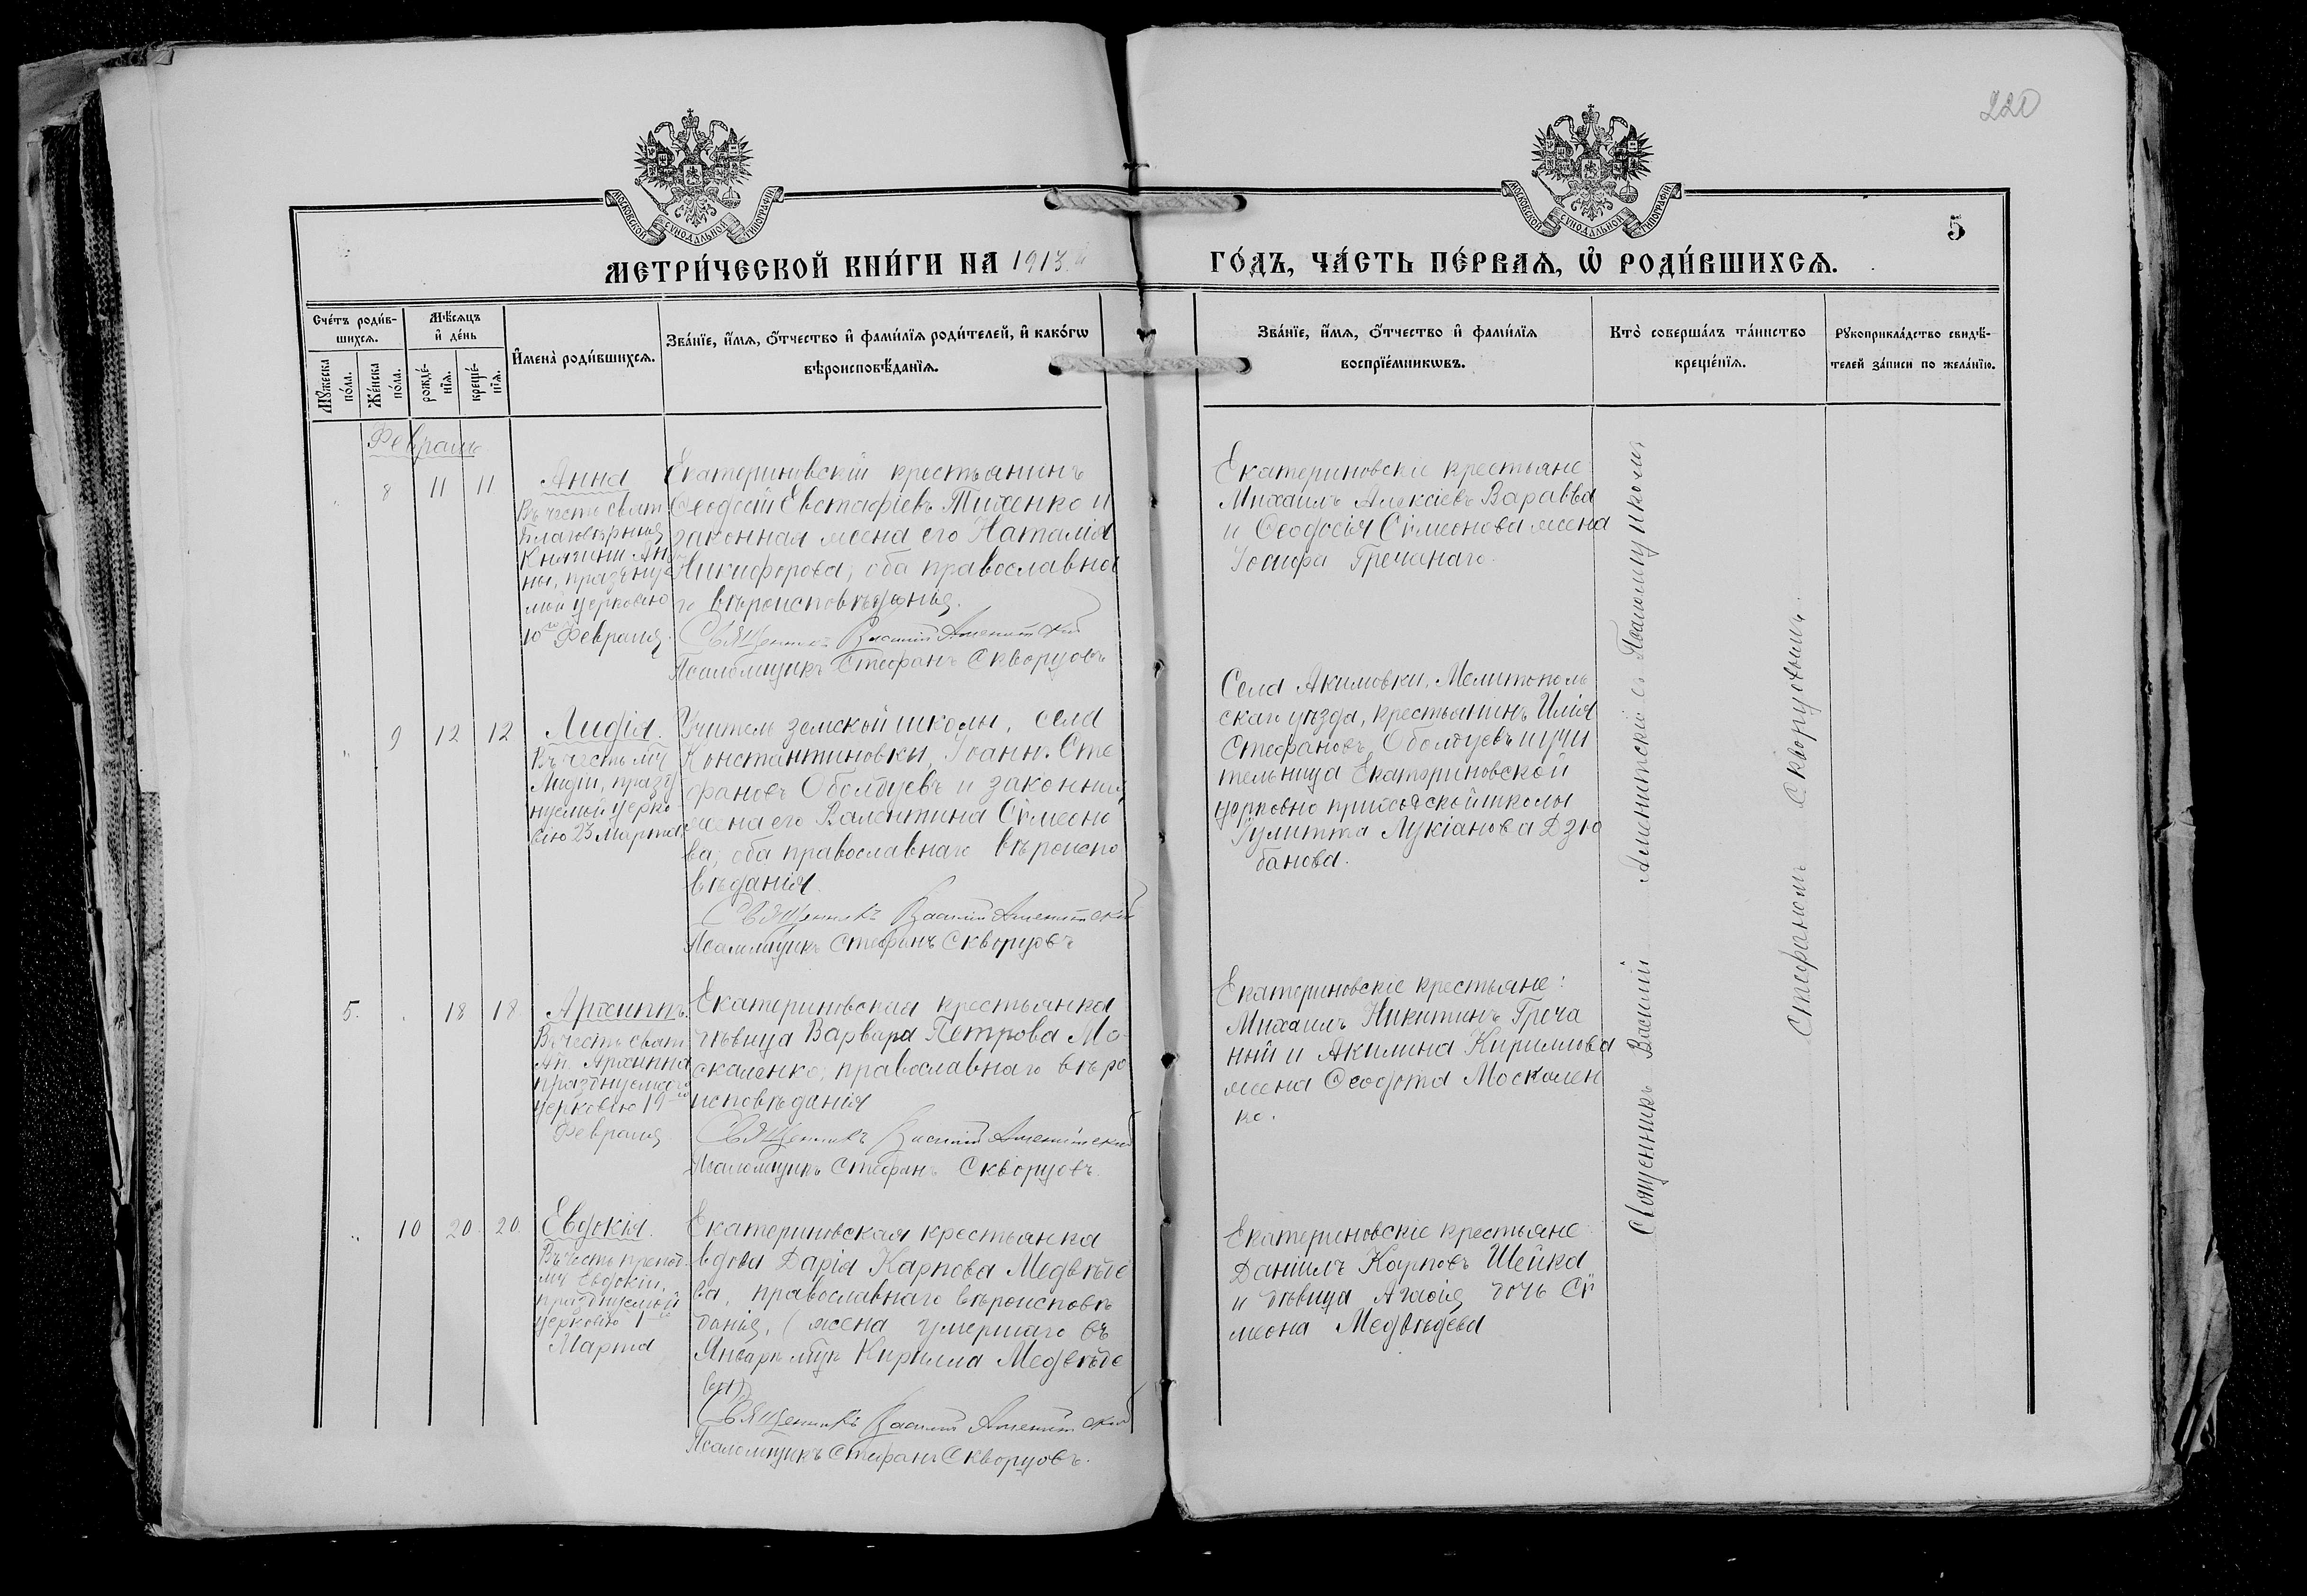 220
МОСКОВСКОЙ СѴНОДАЛЬНОЙ ТИПОГРАФІИ
МОСКОВСКОЙ СѴНОДАЛЬНОЙ ТИПОГРАФІИ
5
МЕТРИ́ЧЕСКОЙ КНИ́ГИ НА 1913 й ГО́ДЪ, ЧА́СТЬ ПЕ́РВАѦ, Ѡ҆ РОДИ́ВШИХСѦ.
Сче́тъ роди́в-
шихсѧ.
Мꙋ́жеска
по́ла.
Же́нска
по́ла.
Мѣ́сѧцъ
и҆ де́нь
рожде́-
нїѧ.
креще́-
нїѧ.
И҆мена̀ роди́вшихсѧ.
Зва́нїе, и҆́мѧ, ѻ҆́тчество и҆ фами́лїѧ роди́телей, и҆ како́гѡ
вѣроисповѣ́данїѧ.
Зва́нїе, и҆́мѧ, ѻ҆́тчество и҆ фами́лїѧ
воспрїе́мникѡвъ.
Кто̀ соверша́лъ та́инство
креще́нїѧ.
Рꙋкоприкла́дство свидѣ́-
телей за́писи по жела́нїю.
Февраль
8 11 11
Анна
Въ честь свят
Благовѣрныя
Княгини Ан
ны, праздну
мой церковію
10го Февраля.
Екатериновскій крестьянинъ
Ѳеодосій Евстафіевъ Тищенко и
законная жена его Наталія
Никифорова, оба православна
го вѣроисповѣданія.
Священникъ Василій Аменитскій
Псаломщикъ Стефанъ Скворцовъ
Екатериновскіе крестьяне
Михаилъ Алексіевъ Варавва
и Ѳеодосія Сѵмеонова жена
Іосифа Гречанаго.
9 12 12
Лидія.
Въ честь мч
Лидіи, празд
нуемой церко
вію 23 Марта
Учитель земской школы, села
Константиновки, Іоаннъ Сте
фановъ Оболдуевъ и законная
жена его Валентина Сѵмеоно
ва, оба православнаго вѣроиспо
вѣданія.
Священникъ Василій Аменитскій
Псаломщикъ Стефанъ Скворцовъ
Села Акимовки, Мелитополь
скаго уѣзда, крестьянинъ Илія
Стефановъ Оболдуевъ и учи
тельница Екатериновской
церковно приходской школы
Іулитта Лукіанова Дзю
банова.
5. 18 18
Архиппъ.
Въ честь свят
Ап. Архиппа
празднуемаго
церковію 19го
Февраля
Екатериновская крестьянка
дѣвица Варвара Петрова Мо
скаленко, православнаго вѣро
исповѣданія
Священникъ Василій Аменитскій
Псаломщикъ Стефанъ Скворцовъ.
Екатериновскіе крестьяне:
Михаилъ Никитинъ Греча
ный и Акилина Кириллова
жена Ѳеодота Москален
ко.
10 20 20
Евдокія.
Въ честь препод
мч Евдокіи,
празднуемой
церковію 1го
Марта
Екатериновская крестьянка
вдова Дарія Карпова Медвѣде
ва, православнаго вѣроисповѣ
данія, (жена умершаго въ
Январѣ мѣс Кирилла Медвѣде
ва)
Священникъ Василій Аменитскій
Псаломщикъ Стефанъ Скворцовъ.
Екатериновскіе крестьяне
Даніилъ Карповъ Шейка
и дѣвица Агаѳія дочь Сѵ
меона Медвѣдева
Священникъ Василій Аменитскій съ Псаломщикомъ
Стефаномъ Скворцовымъ.